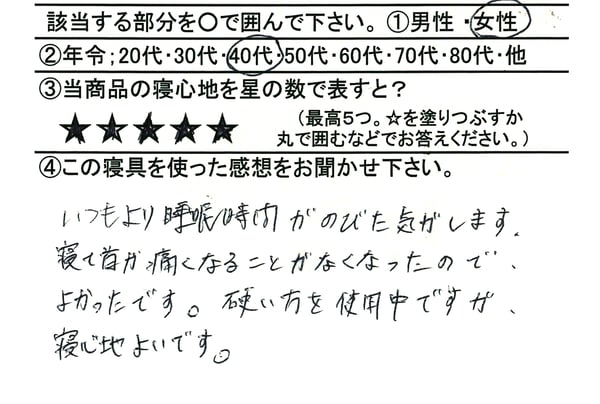 該当する部分を〇で囲んで下さい。①男性・女性
②年令;20代・30代・40代・50代・60代・70代・80代・他
③当商品の寝心地を星の数で表すと?
★★★★★
(最高5つ。☆を塗りつぶすか
丸で囲むなどでお答えください。)
④この寝具を使った感想をお聞かせ下さい。
いつもより睡眠時間がのびた気がします。
寝て首が痛くなることがなくなったので、
よかったです。硬い方を使用中ですが、
寝心地よいです。